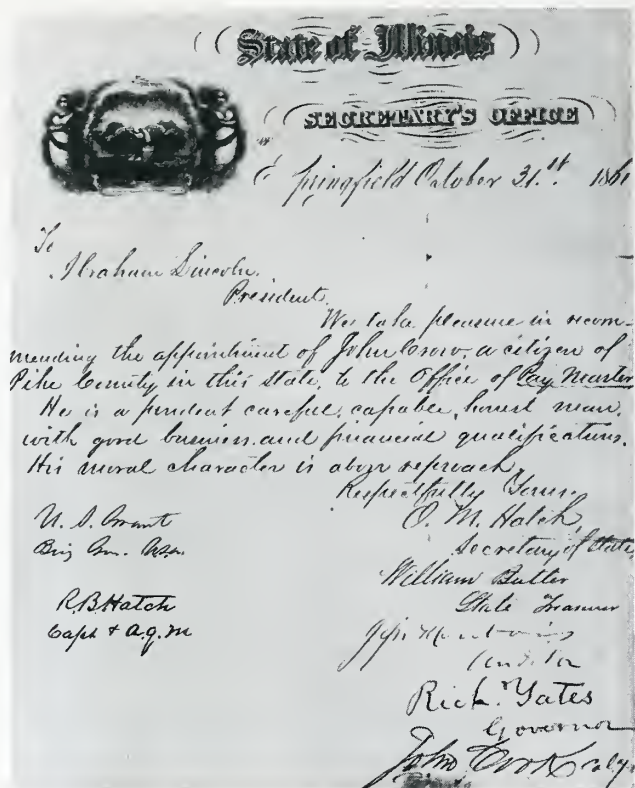 State of Illinois
SECRETARY'S OFFICE
Springfield October 31st. 1861
To
Abraham Lincoln.
President.
We take pleasure in recom-
mending the appointment of John Crow, a citizen of
Pike County in this State, to the Office of Pay Master
He is a prudent careful, capable, honest man.
with good business and financial qualifications.
His moral character is above reproach.
Respectfully Yours.
O. M. Hatch,
Secretary of State
William Butler
State Treasurer
Auditor
Rich. Yates
Governor
John Cook
U. S. Grant
Brig Gen. U.S.A.
R. B. Hatch
Capt & A.Q.M